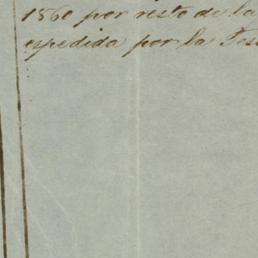 1860 por resto de la
expedida por la Tes